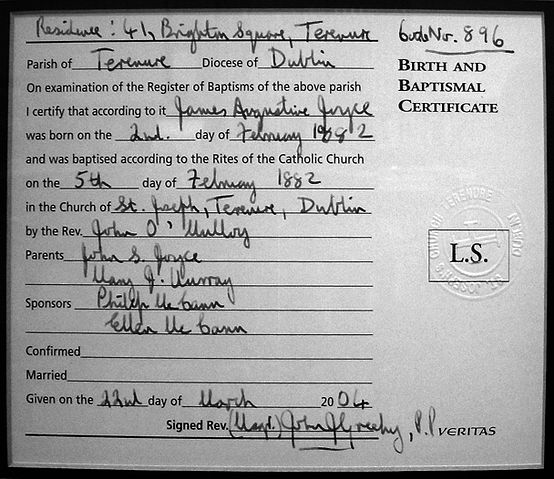 Residence: 41, Brighton Square, Terenure
Code Nr. 896
Parish of Terenure Diocese of Dublin
BIRTH AND
BAPTISMAL
CERTIFICATE
On examination of the Register of Baptisms of the above parish
I certify that according to it James Augustine Joyce
was born on the 2nd. day of February 1882
and was baptised according to the Rites of the Catholic Church
on the 5th day of February 1882
in the Church of St. Joseph, Terenure, Dublin
by the Rev. John O'Mulloy
Parents John S. Joyce
Mary J. Murray
Sponsors Philip McCann
Ellen McCann
Confirmed
Married
Given on the 22nd day of March 2004
Signed Rev. (Msgr.) John J Greehy, P.P.
VERITAS
L.S.